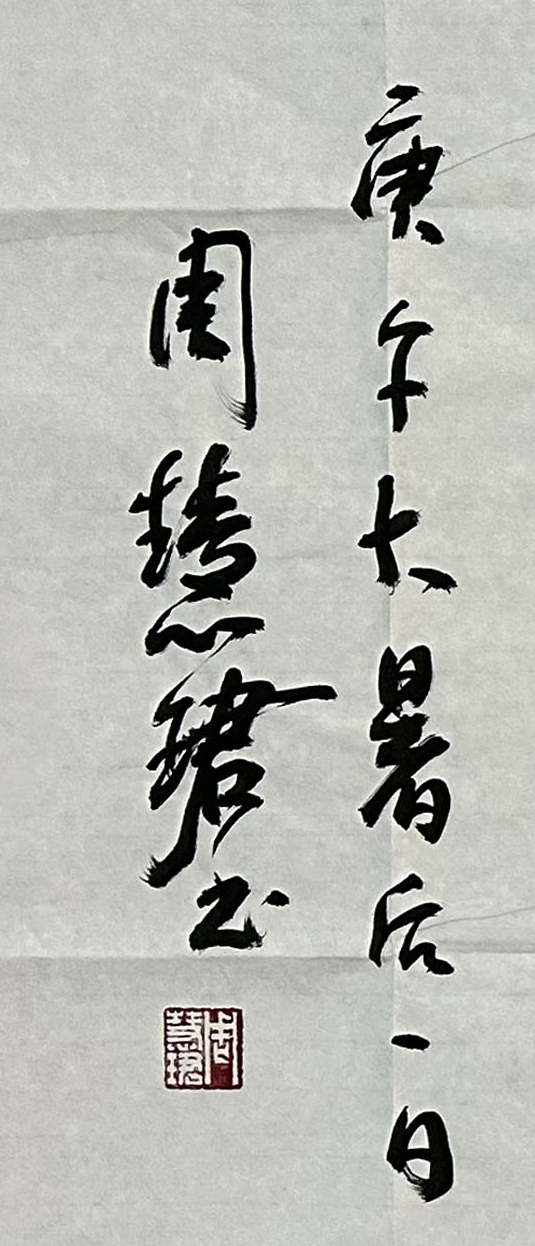 庚午大暑后一日
周慧珺书
周慧珺